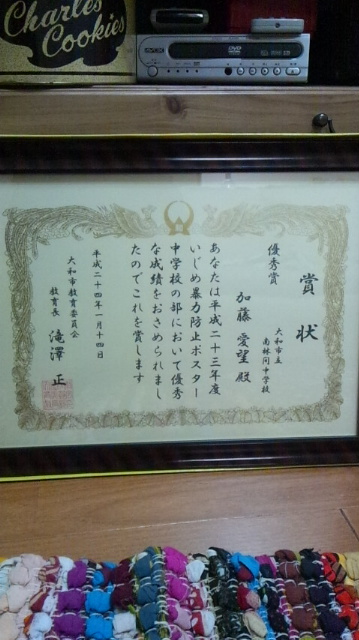 Charles
Cookies
DVD
賞状
優秀賞
大和市立
南林間中学校
加藤 愛望 殿
あなたは平成二十三年度
いじめ暴力防止ポスター
中学校の部において優秀
な成績をおさめられまし
たのでこれを賞します
平成二十四年一月十四日
大和市教育委員会
教育長 滝澤 正